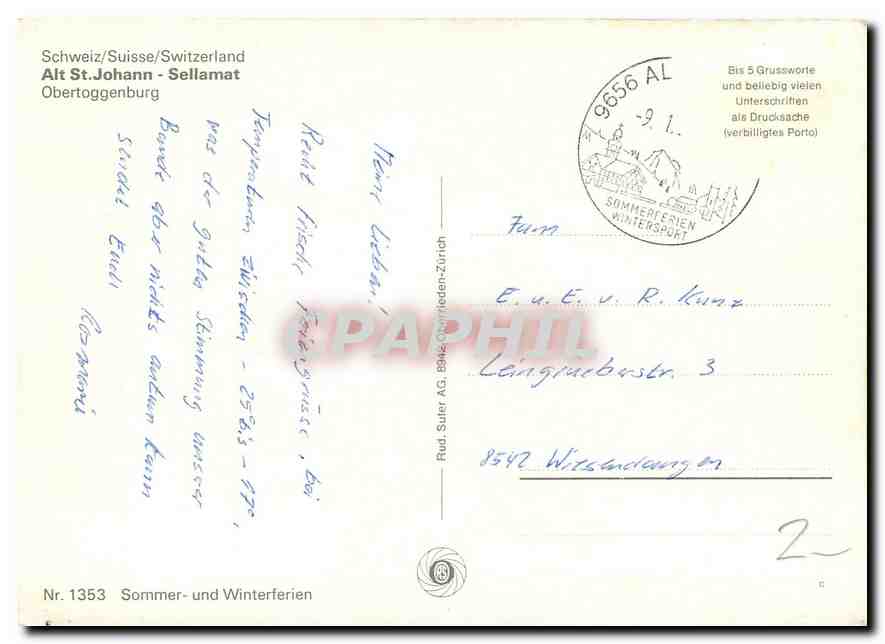 Schweiz/Suisse/Switzerland
Alt St.Johann - Sellamat
Obertoggenburg
Meine Lieben!
Recht frische Feriengrüsse, bei
Temperaturen zwischen -25 bis -17°,
was der guten Stimmung unserer
Bande aber nichts antun kann
sendet Euch
Rosmarie
Nr. 1353 Sommer- und Winterferien
Rud. Suter AG, 8942 Oberrieden-Zürich
CPAPHIL
9656 AL
-9. 1.
SOMMERFERIEN
WINTERSPORT
Bis 5 Grussworte
und beliebig vielen
Unterschriften
als Drucksache
(verbilligtes Porto)
Fam
E. u. E. v. R. Kunz
3
8542 Wiesendangen
2-
c